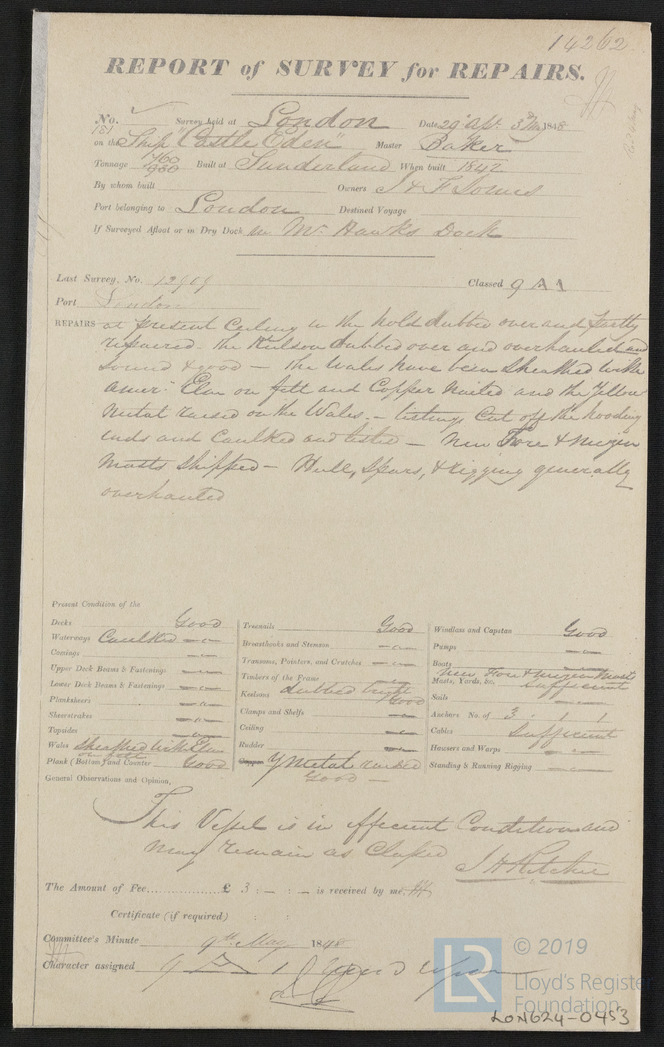 14262
REPORT of SURVEY for REPAIRS.
No. 181 Survey held at London Date 29 Ap. 3 My 1848
on the Ship "Castle Eden" Master Baker
Tonnage 930 Built at Sunderland When built 1842
By whom built Owners J & F Somes
Port belonging to London Destined Voyage
If Surveyed Afloat or in Dry Dock in Mr. Hawks Dock
Last Survey, No. 13909 Classed 9 A 1
Port London
REPAIRS at present Ceiling in the hold dubbed over and partly
repaired. the Keelson dubbed over and overhauled and
sound & good – the Wales have been Sheathed with
Amer: Elm on felt and Copper Nailed and the Yellow
Metal raised on the Wales. – listing Cut off the hooding
ends and Caulked and listed – New Fore & Mizen
Masts Shipped – Hull, Spars, & rigging generally
overhauled
Present Condition of the
Decks Good
Waterways Caulked
Comings
Upper Deck Beams & Fastenings
Lower Deck Beams & Fastenings
Planksheers
Sheerstrakes
Topsides
Wales Sheathed with Elm
on felt
Plank (Bottom) and Counter Good
Treenails Good
Breasthooks and Stemson
Transoms, Pointers, and Crutches
Timbers of the Frame
Keelsons dubbed bright Good
Clamps and Shelfs
Ceiling
Rudder
Copper Y Metal raised
Good –
Windlass and Capstan Good
Pumps
Boats
New Fore & Mizen Mast
Masts, Yards, &c. Sufficient
Sails
Anchors No. of 3 . 1 . 1
Cables Sufficient
Hawsers and Warps
Standing & Running Rigging
General Observations and Opinion,
This Vessel is in efficient Condition and
may remain as Classed J H Ritchie
The Amount of Fee £ 3 : – : – is received by me,
Certificate (if required) : :
Committee's Minute 9th May 1848
Character assigned 9 A 1
LR
© 2019
Lloyd's Register
Foundation
LON624-0453